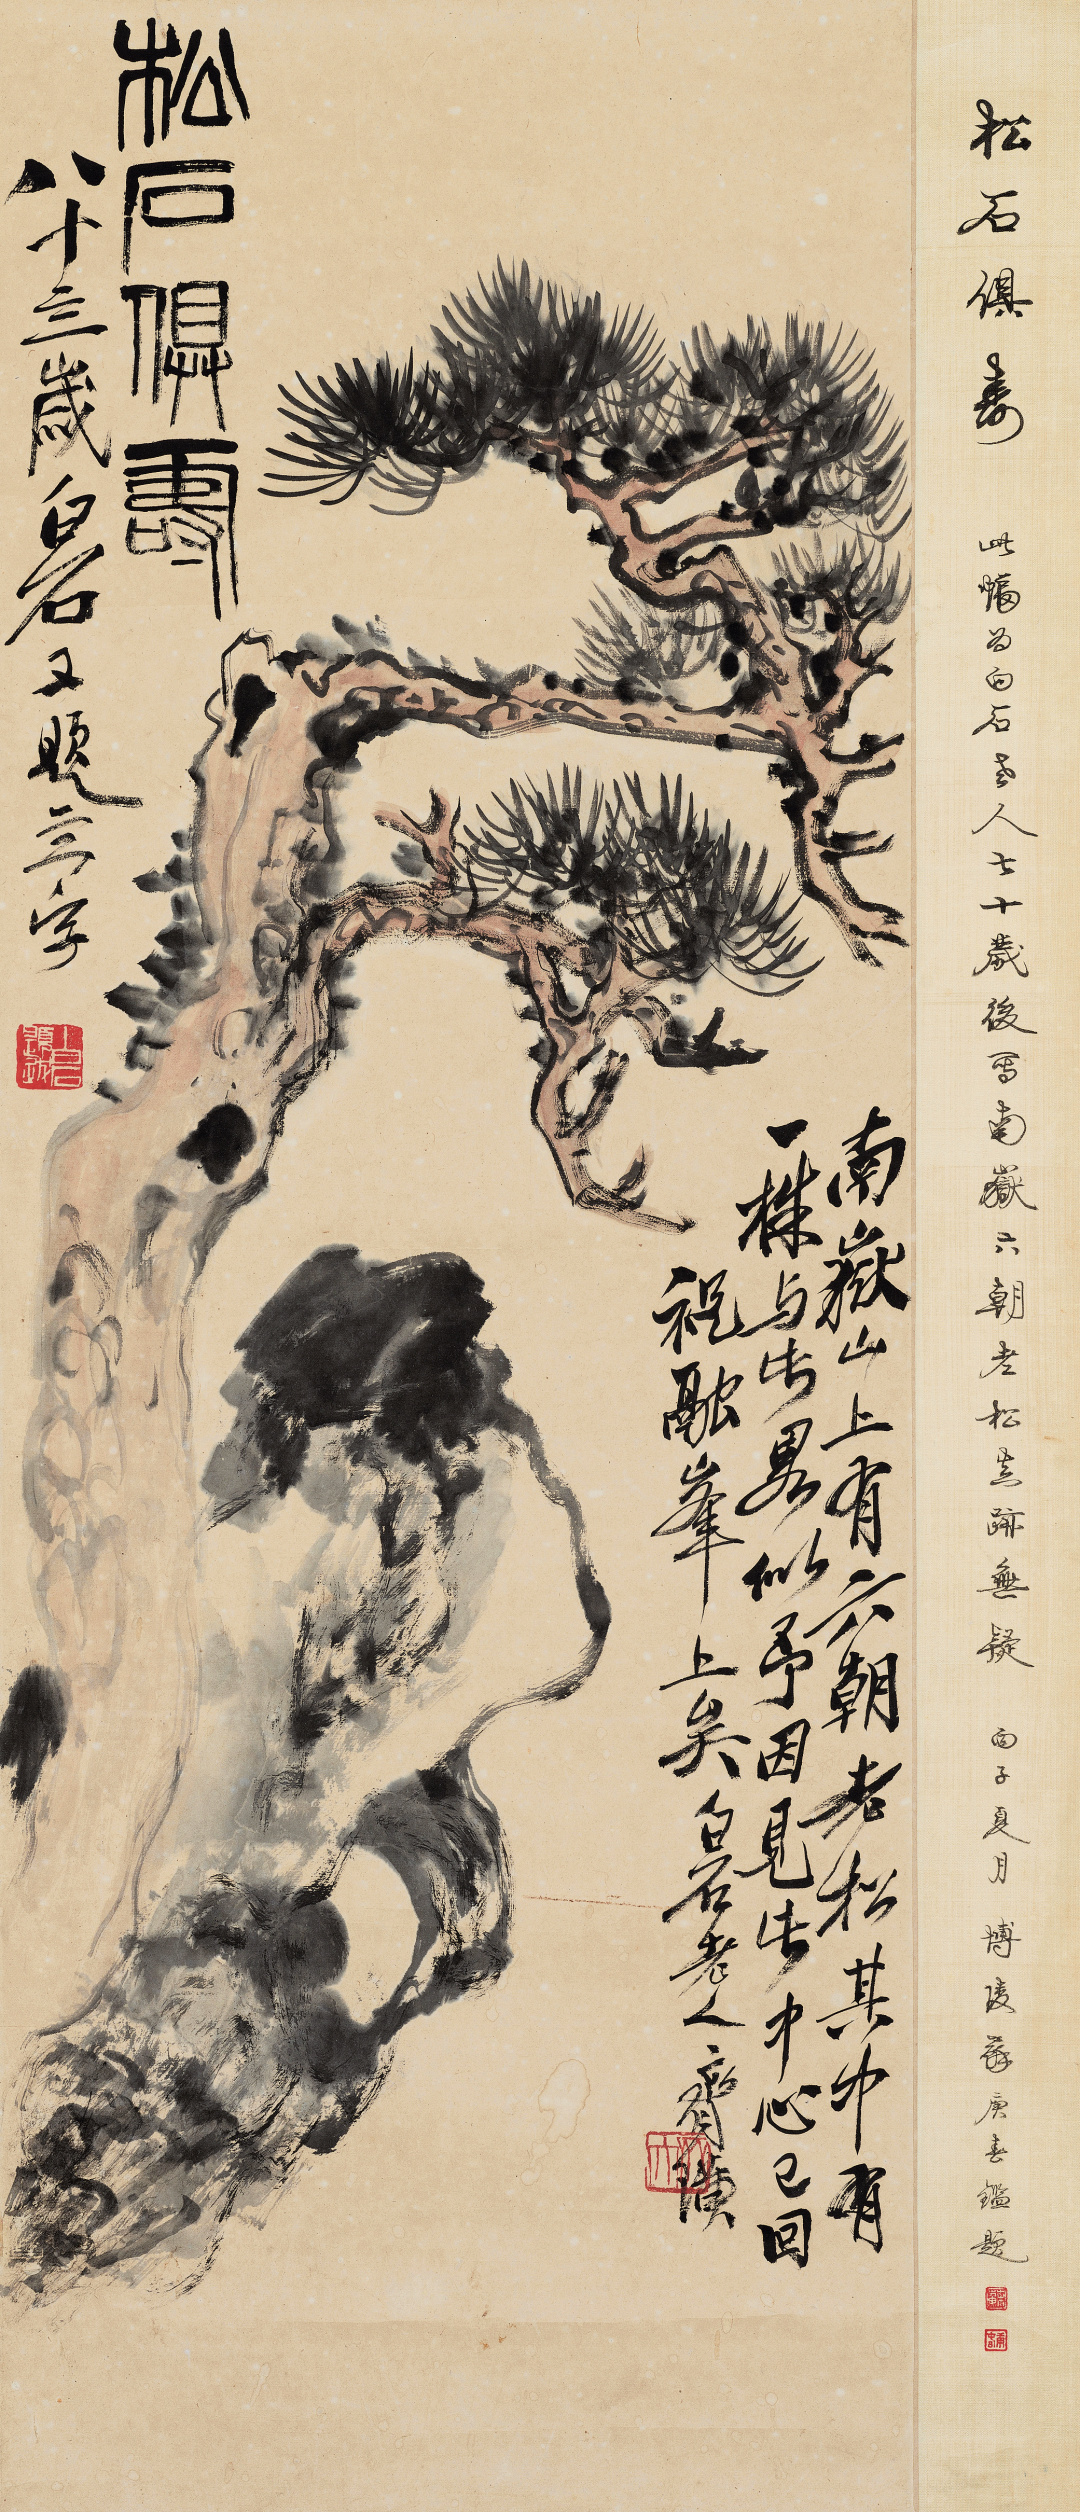 松石俱壽
八十三歲白石又題三字
南嶽山上有六朝老松其中有
一株与此畧似予因見此中心已回
祝融峯上矣白石老人齊璜
松石俱壽 此幅为白石老人七十歲後寫南嶽六朝老松真跡無疑 丙子夏月 博陵蘇庚春鑑題